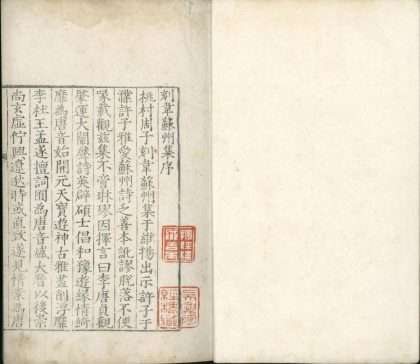 刻韋蘇州集序
桃村周子刻韋蘇州集于維揚出示許子于
許子雅愛蘇州詩之善本訛謬脫落不便
載觀茲集不啻琳璆因擇言曰李唐貞觀
肇運大闡聲詩英辟碩士倡和豫遊緣情綺
靡為唐音始開元天寶遊神古雅盡削浮靡
李杜王孟遂擅詞囿為唐音盛大曆以後崇
尚玄虛佇興遼逖時或直致遂見情素為唐